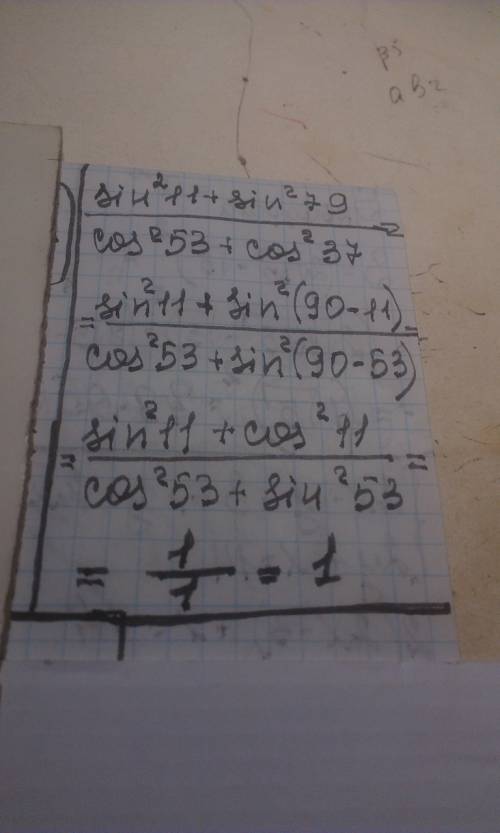 p5
ab2
sin²11+sin²79 =
cos²53+cos²37
= sin²11+sin²(90-11) =
cos²53+sin²(90-53)
= sin²11+cos²11 =
cos²53+sin²53
= 1/1 = 1